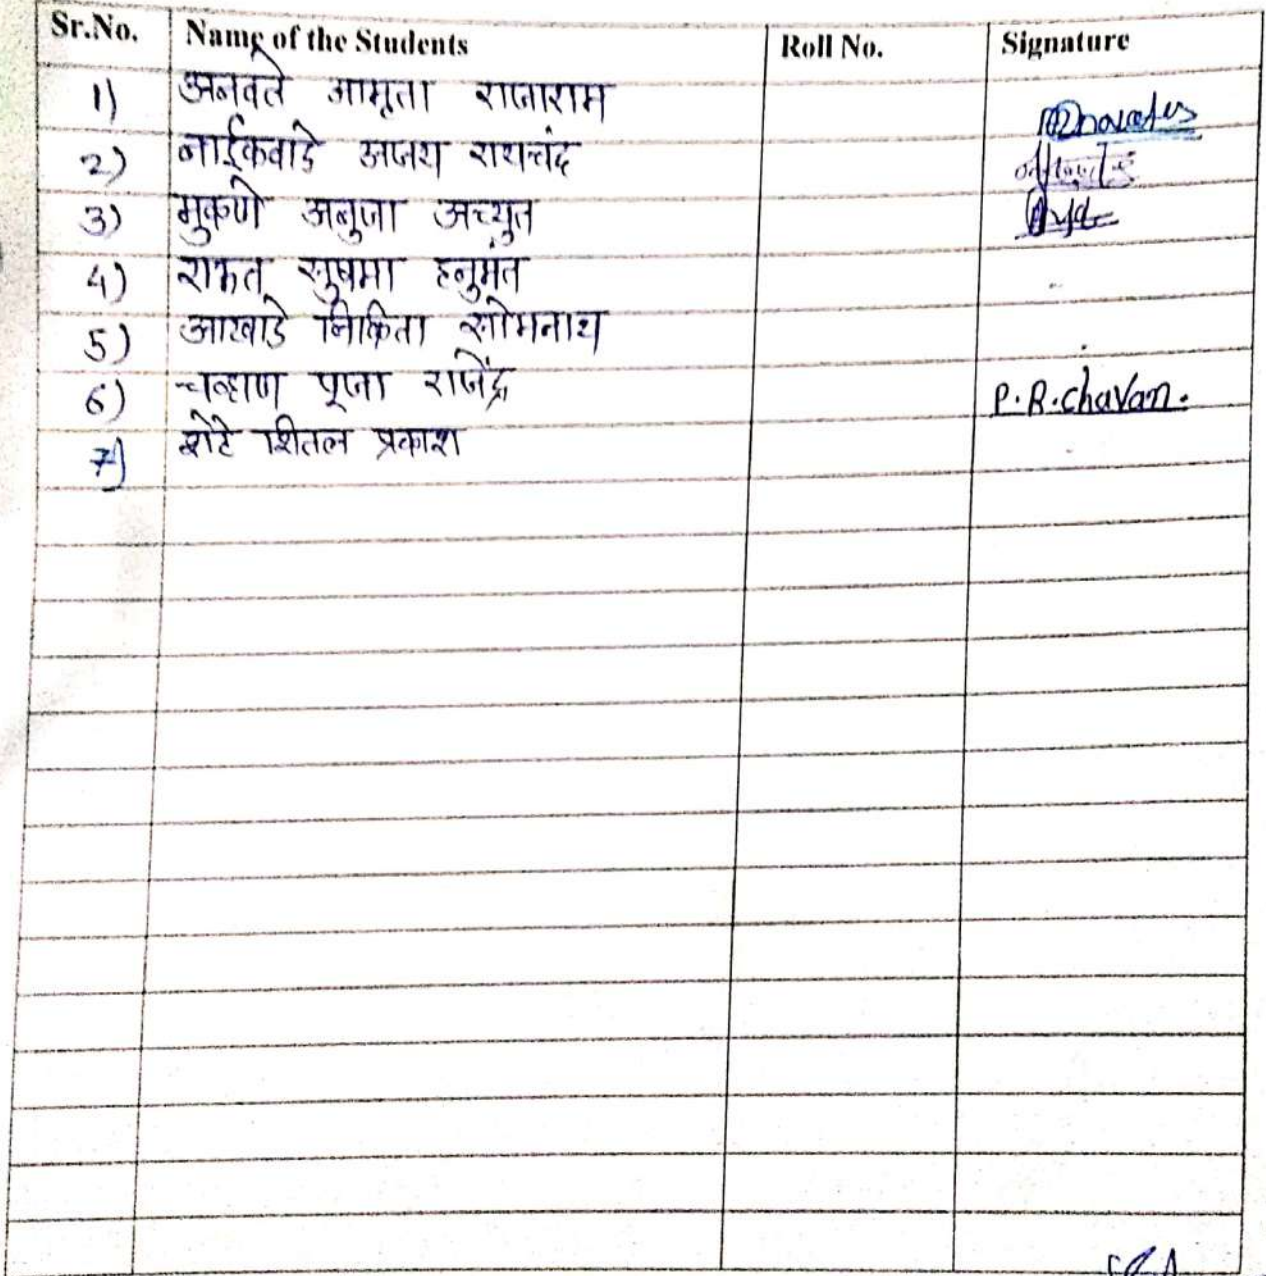 Sr.No. Name of the Students Roll No. Signature
1) अनवते अमृता राजाराम
2) नाईकवाडे अजय रायचंद
3) मुकणे अबुजा अच्युत
4) राऊत सुषमा हनुमंत
5) आखाडे निकिता सोमनाथ
6) चव्हाण पूजा राजेंद्र P.R.chavan.
7) शेटे शितल प्रकाश